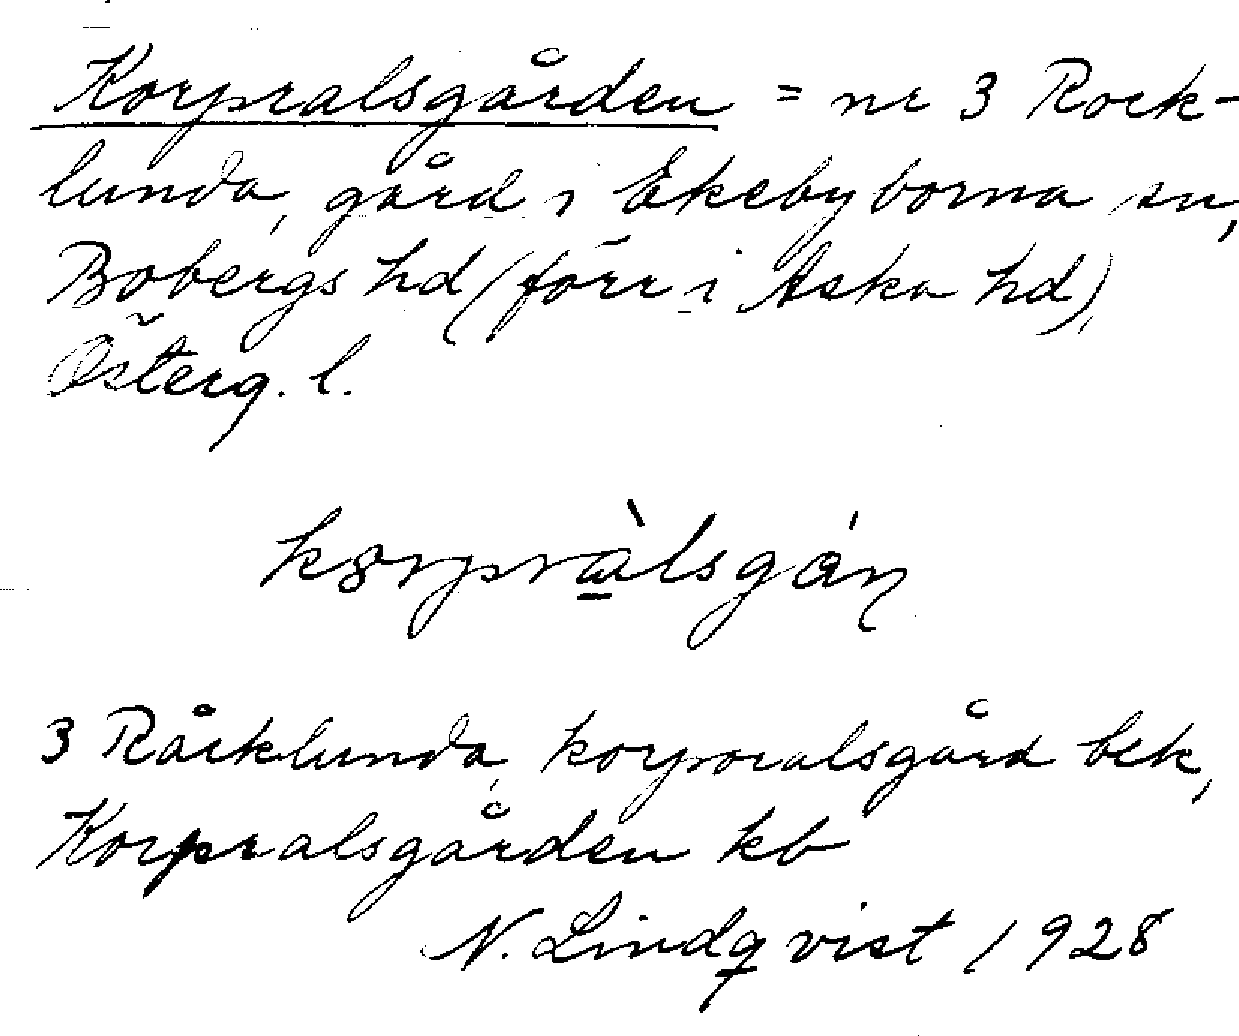 Korpralsgården = nr 3 Rock-
lunda, gård i Ekebyborna sn,
Bobergs hd (förr i Aska hd),
Österg. l.
korpràlsgán
3 Råcklunda, korpralsgård bek,
Korpralsgården kb
N. Lindqvist 1928